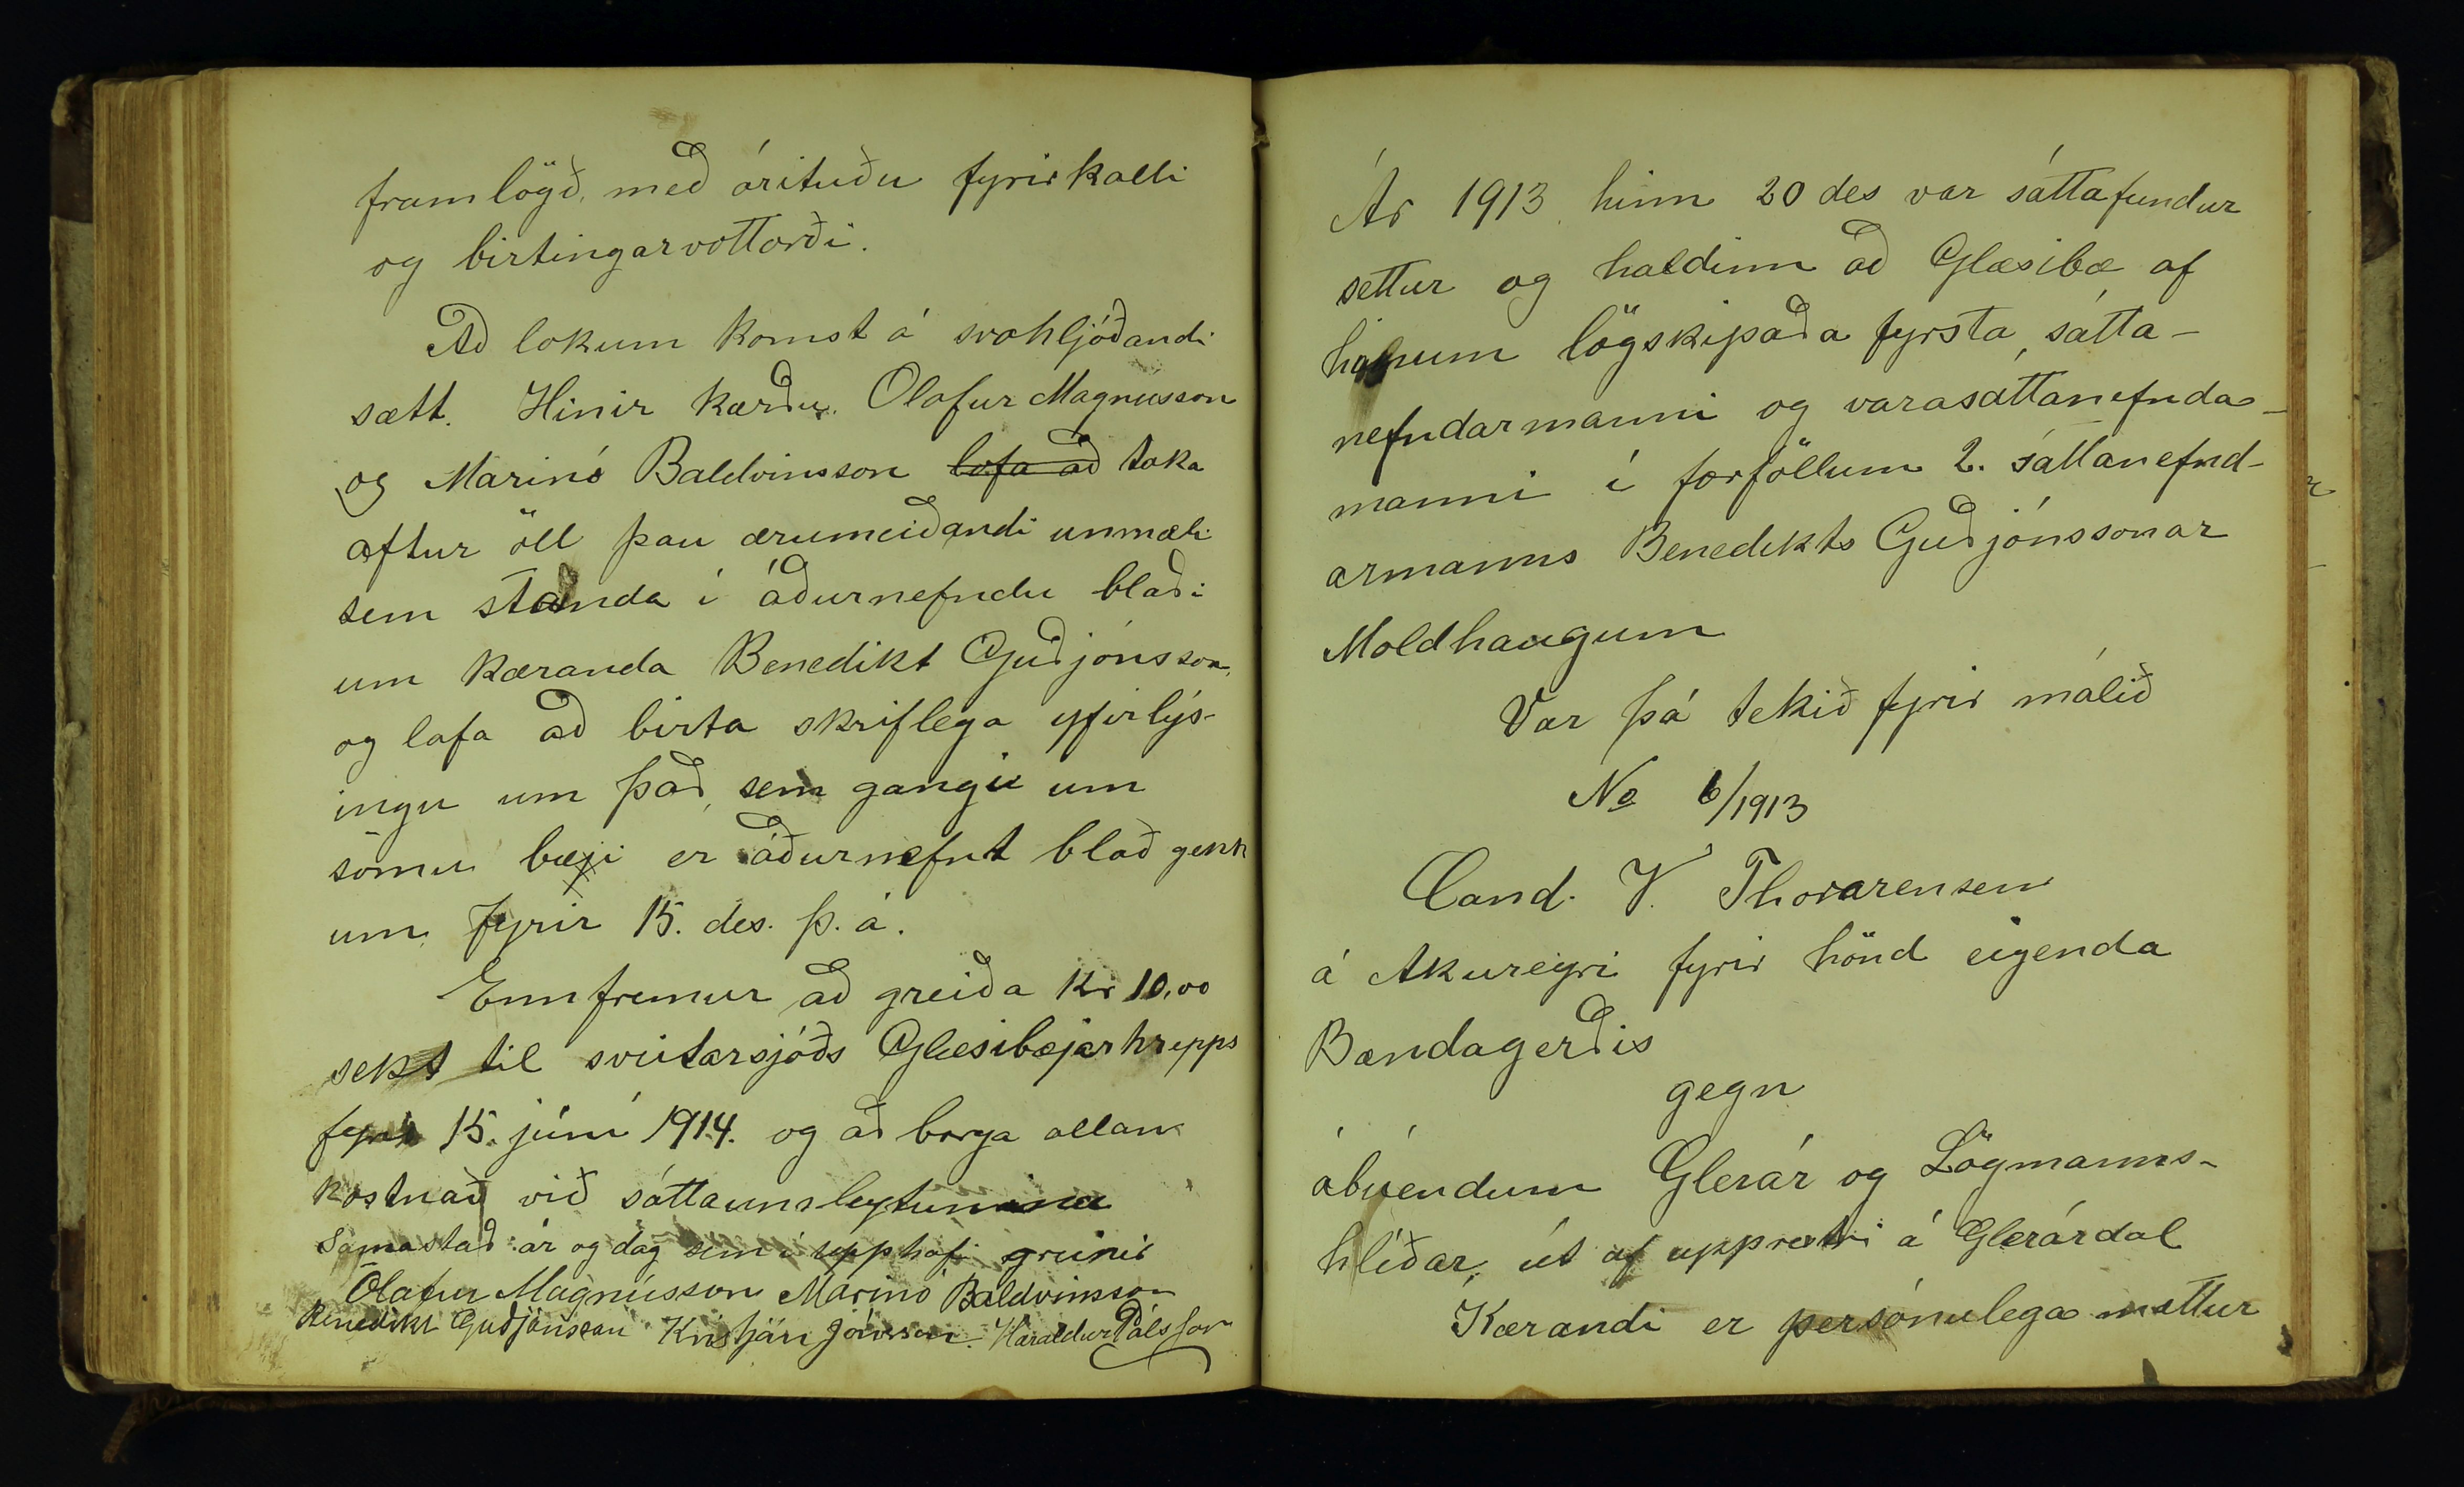 framlögð, með árituðu fyrirkalli
og birtingarvottorði.
Að lokum komst á svohljóðandi
sætt. Hinir kærðu. Olafur Magnússon
og Marinó Baldvinsson lofa að taka
aftur öll þau ærumeiðandi ummæli
sem standa í áðurnefndu blaði
um kæranda Benedikt Guðjónsson,
og lofa að birta skriflega yfirlýs-
ingu um það, sem gangi um
sömu bæji er áðurnefnt blað gekk
um fyrir 15. des. þ. á.
Ennfremur að greiða Kr 10,00
sekt til sveitarsjóðs Glæsibæjarhrepps
fyrir 15. júní 1914. og að borga allan
kostnað við sáttaumleytunina
Samastað ár og dag sem í upphafi greinir
Ólafur Magnússon Marinó Baldvinsson
Benedikt Guðjónsson Kristján Jónsson. Haraldur Pálsson
Ár 1913 hinn 20 des var sáttafundur
settur og haldinn að Glæsibæ af
hinum lögskipaða fyrsta sátta-
nefndarmanni og varasáttanefnda-
manni í forföllum 2. sáttanefnd-
armanns Benedikts Guðjónssonar
Moldhaugum
Var þá tekið fyrir málið
No 6/1913
Cand. V. Thorarensen
á Akureyri fyrir hönd eigenda
Bandagerðis
gegn
ábúendum Glerár og Lögmanns-
hlíðar, út af upprextri á Glerárdal
Kærandi er persónulega mættur